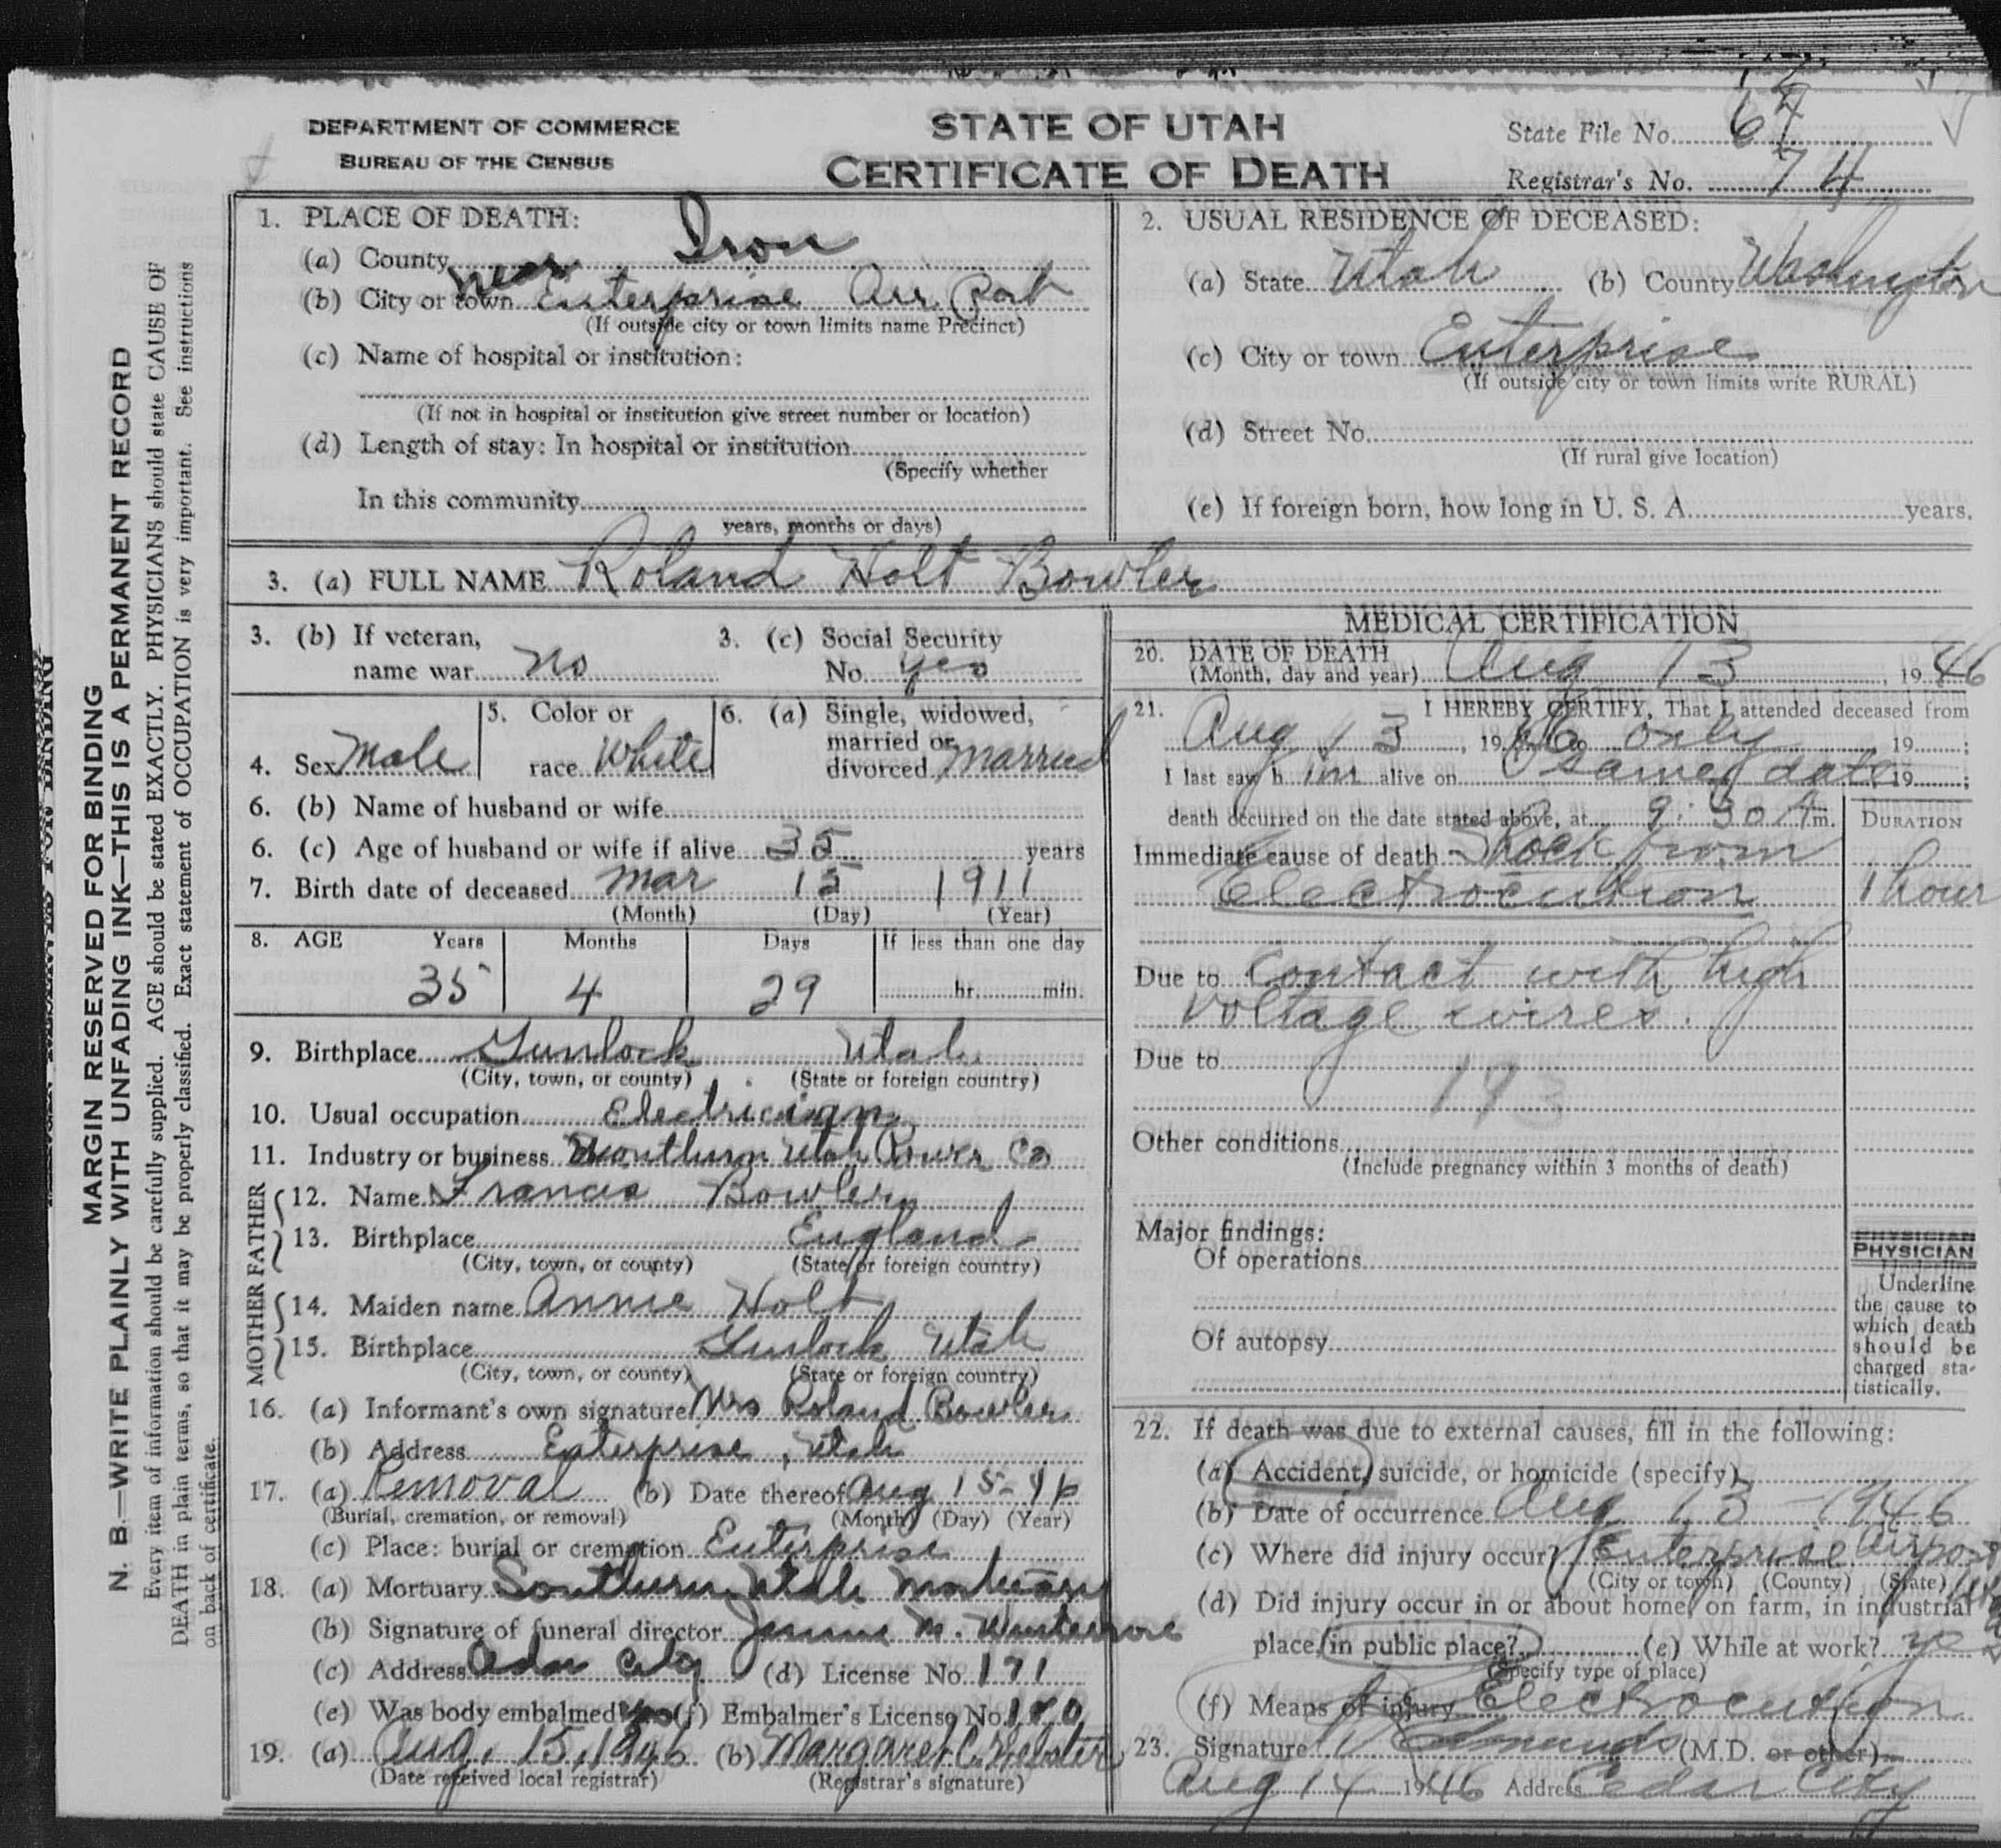 DEPARTMENT OF COMMERCE
BUREAU OF THE CENSUS
STATE OF UTAH
CERTIFICATE OF DEATH
State File No. 64
Registrar's No. 74
MARGIN RESERVED FOR BINDING
N. B.—WRITE PLAINLY WITH UNFADING INK—THIS IS A PERMANENT RECORD
Every item of information should be carefully supplied. AGE should be stated EXACTLY. PHYSICIANS should state CAUSE OF
DEATH in plain terms, so that it may be properly classified. Exact statement of OCCUPATION is very important. See instructions
on back of certificate.
1. PLACE OF DEATH:
(a) County Iron
(b) City or town near Enterprise Air Port
(If outside city or town limits name Precinct)
(c) Name of hospital or institution:
(If not in hospital or institution give street number or location)
(d) Length of stay: In hospital or institution
(Specify whether
In this community
years, months or days)
2. USUAL RESIDENCE OF DECEASED:
(a) State Utah (b) County Washington
(c) City or town Enterprise
(If outside city or town limits write RURAL)
(d) Street No.
(If rural give location)
(e) If foreign born, how long in U. S. A. years.
3. (a) FULL NAME Roland Holt Bowler
3. (b) If veteran,
name war no
3. (c) Social Security
No. yes
4. Sex Male
5. Color or
race White
6. (a) Single, widowed,
married or
divorced Married
6. (b) Name of husband or wife
6. (c) Age of husband or wife if alive 35 years
7. Birth date of deceased Mar 15 1911
(Month) (Day) (Year)
8. AGE Years Months Days If less than one day
35 4 29 hr. min.
9. Birthplace Gunlock Utah
(City, town, or county) (State or foreign country)
10. Usual occupation Electrician
11. Industry or business Southern Utah Power Co
FATHER
12. Name Francis Bowler
13. Birthplace England
(City, town, or county) (State or foreign country)
MOTHER
14. Maiden name Annie Holt
15. Birthplace Gunlock Utah
(City, town, or county) (State or foreign country)
16. (a) Informant's own signature Mrs Roland Bowler
(b) Address Enterprise, Utah
17. (a) Removal (b) Date thereof Aug 15-46
(Burial, cremation, or removal) (Month) (Day) (Year)
(c) Place: burial or cremation Enterprise
18. (a) Mortuary Southern Utah Mortuary
(b) Signature of funeral director M.
(c) Address Cedar City (d) License No. 171
(e) Was body embalmed yes (f) Embalmer's License No. 180
19. (a) Aug. 15, 1946 (b) Margaret C. Webster
(Date received local registrar) (Registrar's signature)
MEDICAL CERTIFICATION
20. DATE OF DEATH
(Month, day and year) Aug 13, 1946
21. I HEREBY CERTIFY, That I attended deceased from
Aug 13, 1946 to only 19 ;
I last saw h im alive on same date, 19 ;
death occurred on the date stated above, at 9:30 A m.
DURATION
Immediate cause of death Shock from
Electrocution 1 hour
Due to Contact with high
voltage wires.
Due to
193
Other conditions
(Include pregnancy within 3 months of death)
Major findings:
Of operations
Of autopsy
PHYSICIAN
Underline
the cause to
which death
should be
charged sta-
tistically.
22. If death was due to external causes, fill in the following:
(a) Accident, suicide, or homicide (specify)
(b) Date of occurrence Aug 13 - 1946
(c) Where did injury occur? Enterprise Airport
(City or town) (County) (State) Utah
(d) Did injury occur in or about home, on farm, in industrial
place, in public place? (e) While at work? yes
(Specify type of place)
(f) Means of injury Electrocution
23. Signature Edmunds (M.D. or other)
Aug 14 1946 Address Cedar City